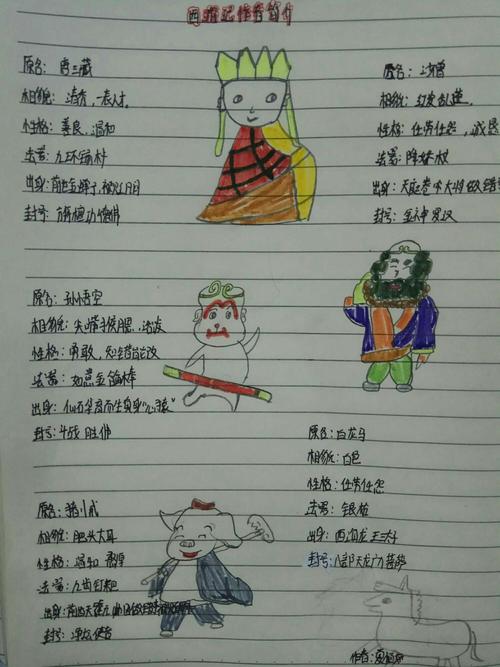 西游记作者简介
原名：唐三藏
相貌：清秀，一表人才。
性格：善良，温和
法器：九环锡杖
出身：前世金蝉子
封号：旃檀功德佛
原名：沙僧
相貌：红发乱蓬。
性格：任劳任怨，诚恳
法器：降妖杖
出身：天庭卷帘大将
封号：金身罗汉
原名：孙悟空
相貌：尖嘴猴腮
性格：勇敢，知错就改
法器：如意金箍棒
出身：仙石孕育而生 "心猿"
封号：斗战胜佛
原名：白龙马
相貌：白色
性格：任劳任怨
法器：银枪
出身：西海龙王三太子
封号：八部天龙广力菩萨
原名：猪八戒
相貌：肥头大耳
性格：
法器：九齿钉耙
出身：前世天蓬元帅
封号：净坛使者
作者：